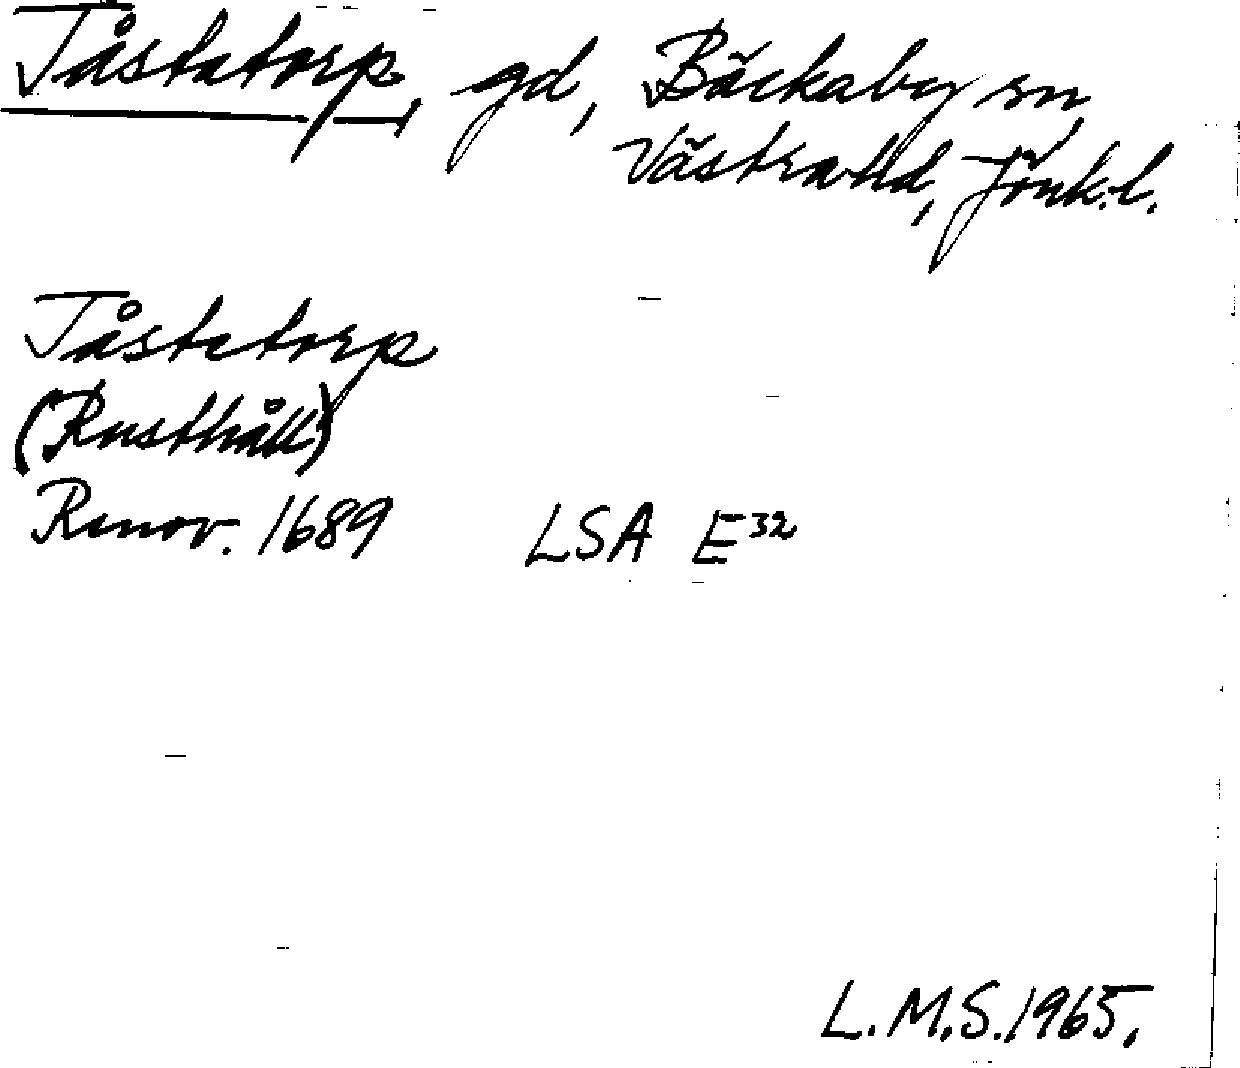 Tåstatorp, gd, Bäckaby sn,
Västra hd, Jönk.l.
Tåstetorp
(Rusthåll)
Renov. 1689 LSA E³²
L.M.S. 1965.